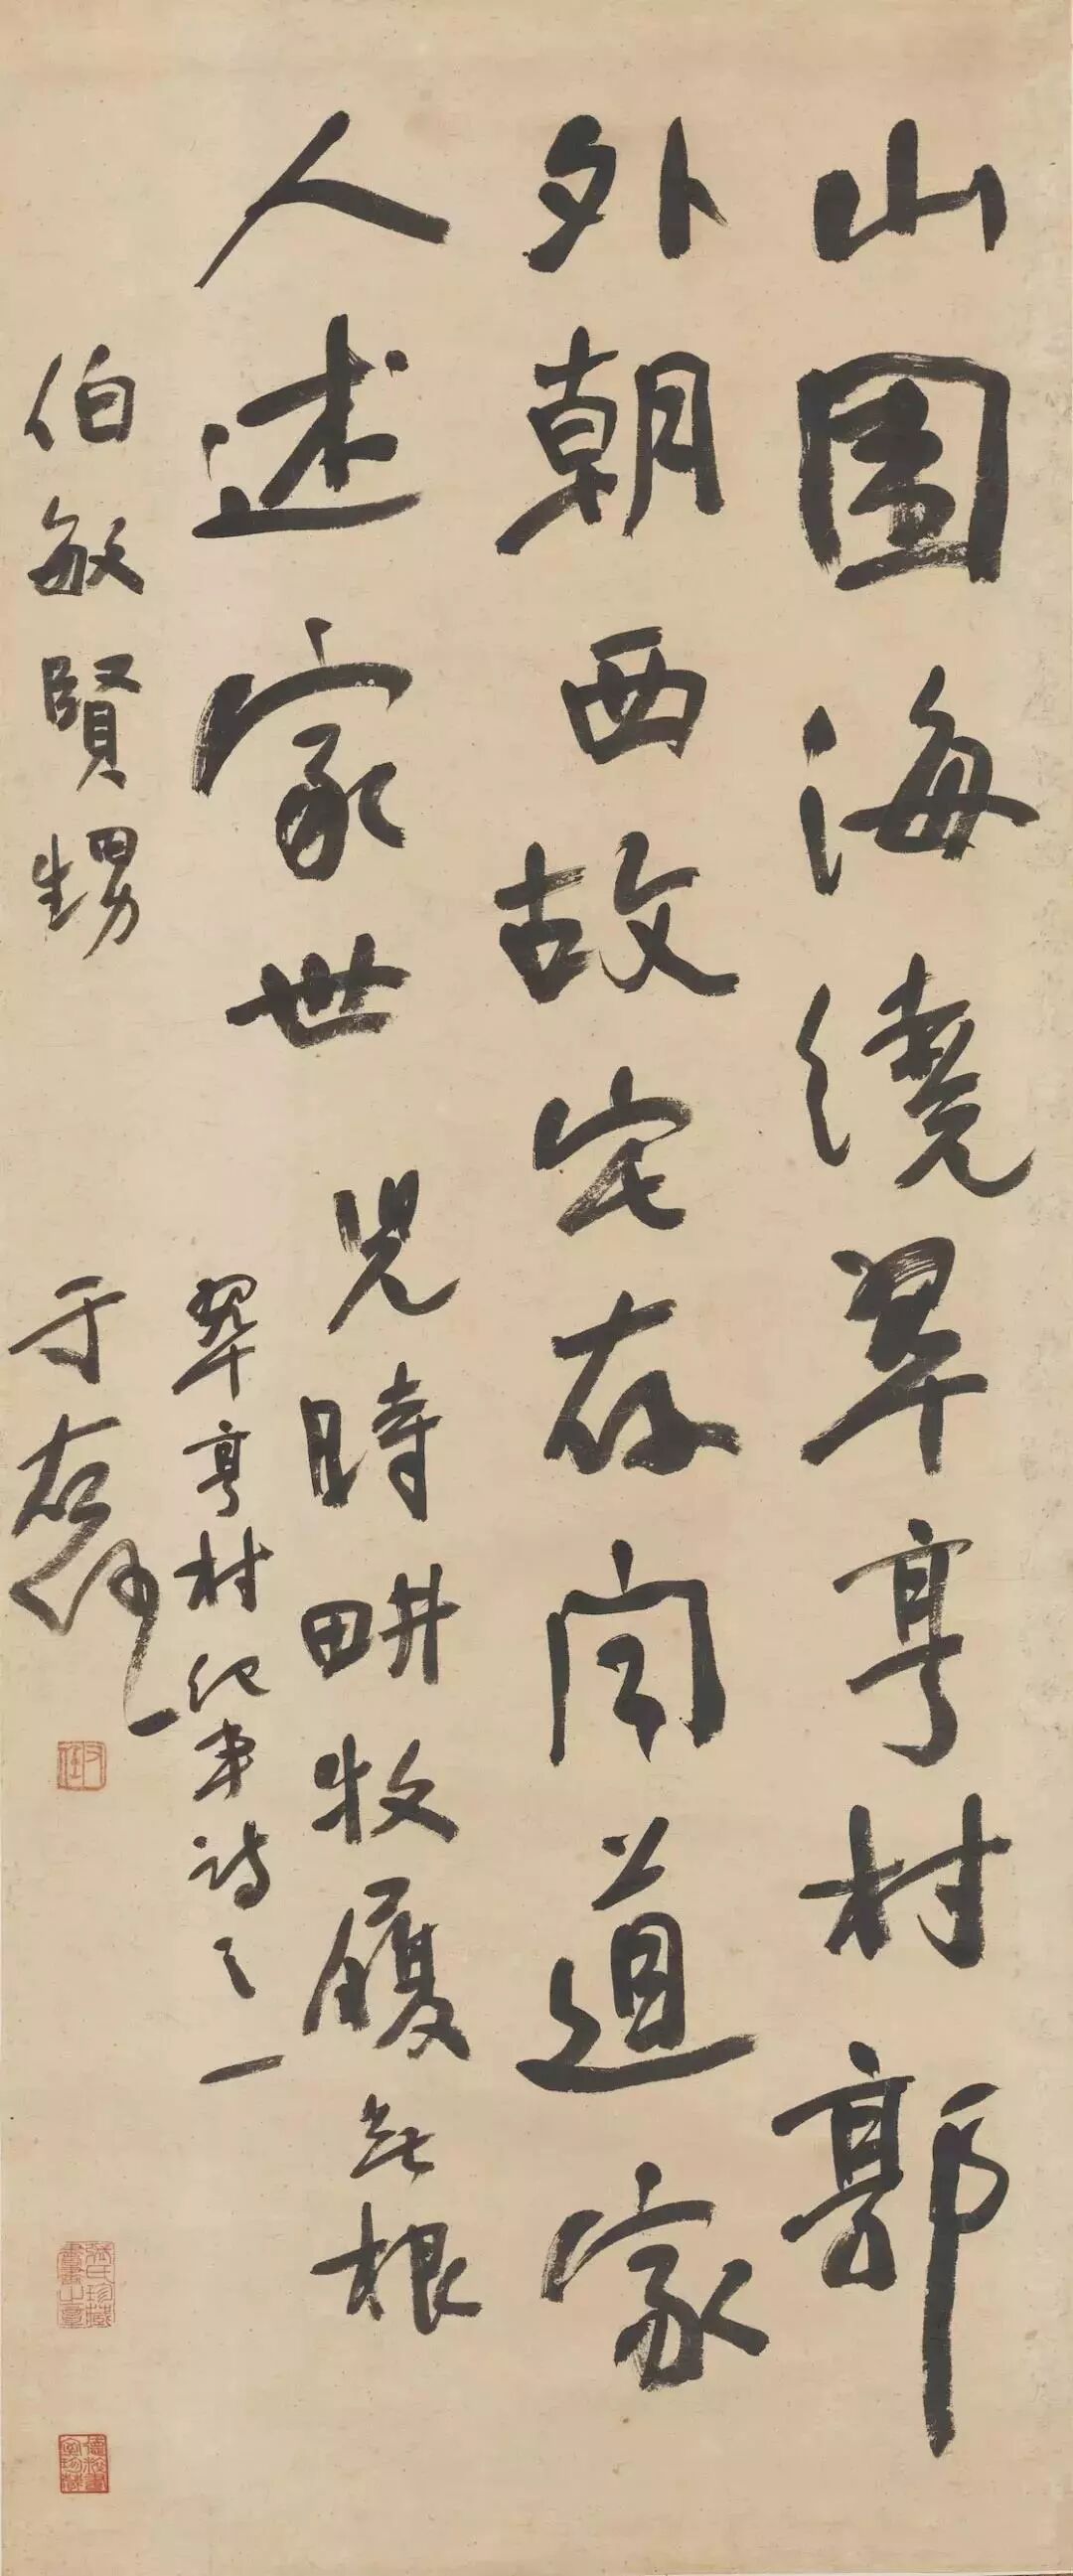 山圍海繞翠亨村郭
外朝西故宅存聞道家
人述家世兒時畊牧履無根
翠亨村紀事詩之一
伯敏賢甥
于右任
右任